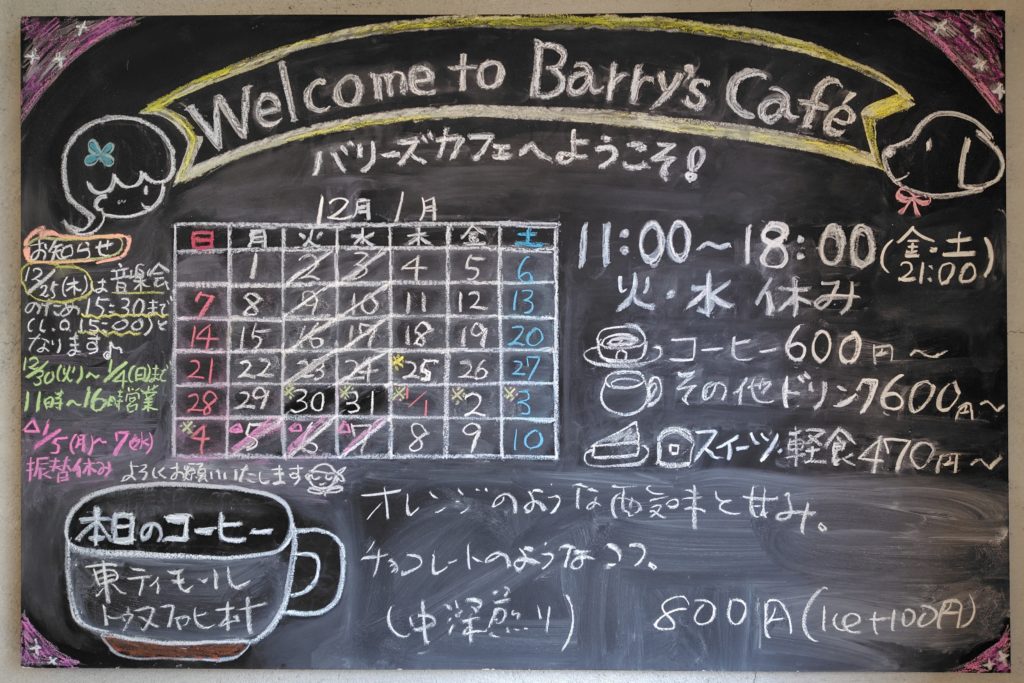 Welcome to Barry's Café
バリーズカフェへようこそ!
12月 1月
日 月 火 水 木 金 土
1 2 3 4 5 6
7 8 9 10 11 12 13
14 15 16 17 18 19 20
21 22 23 24 *25 26 27
28 29 *30 *31 *1/1 *2 *3
*4 △5 △6 △7 8 9 10
お知らせ
12/25(木)は音楽会
のため15:30まで
(L.O.15:00)と
なります♪
12/30(火)〜1/4(日)まで
11時〜16時営業
△1/5(月)〜7(水)
振替休み よろしくお願いいたします
11:00〜18:00(金・土
21:00)
火・水 休み
コーヒー600円〜
その他ドリンク600円〜
スイーツ・軽食470円〜
本日のコーヒー
東ティモール
トゥヌファヒ村
オレンジのような酸味と甘み。
チョコレートのようなコク。
(中深煎り) 800円(Ice+100円)